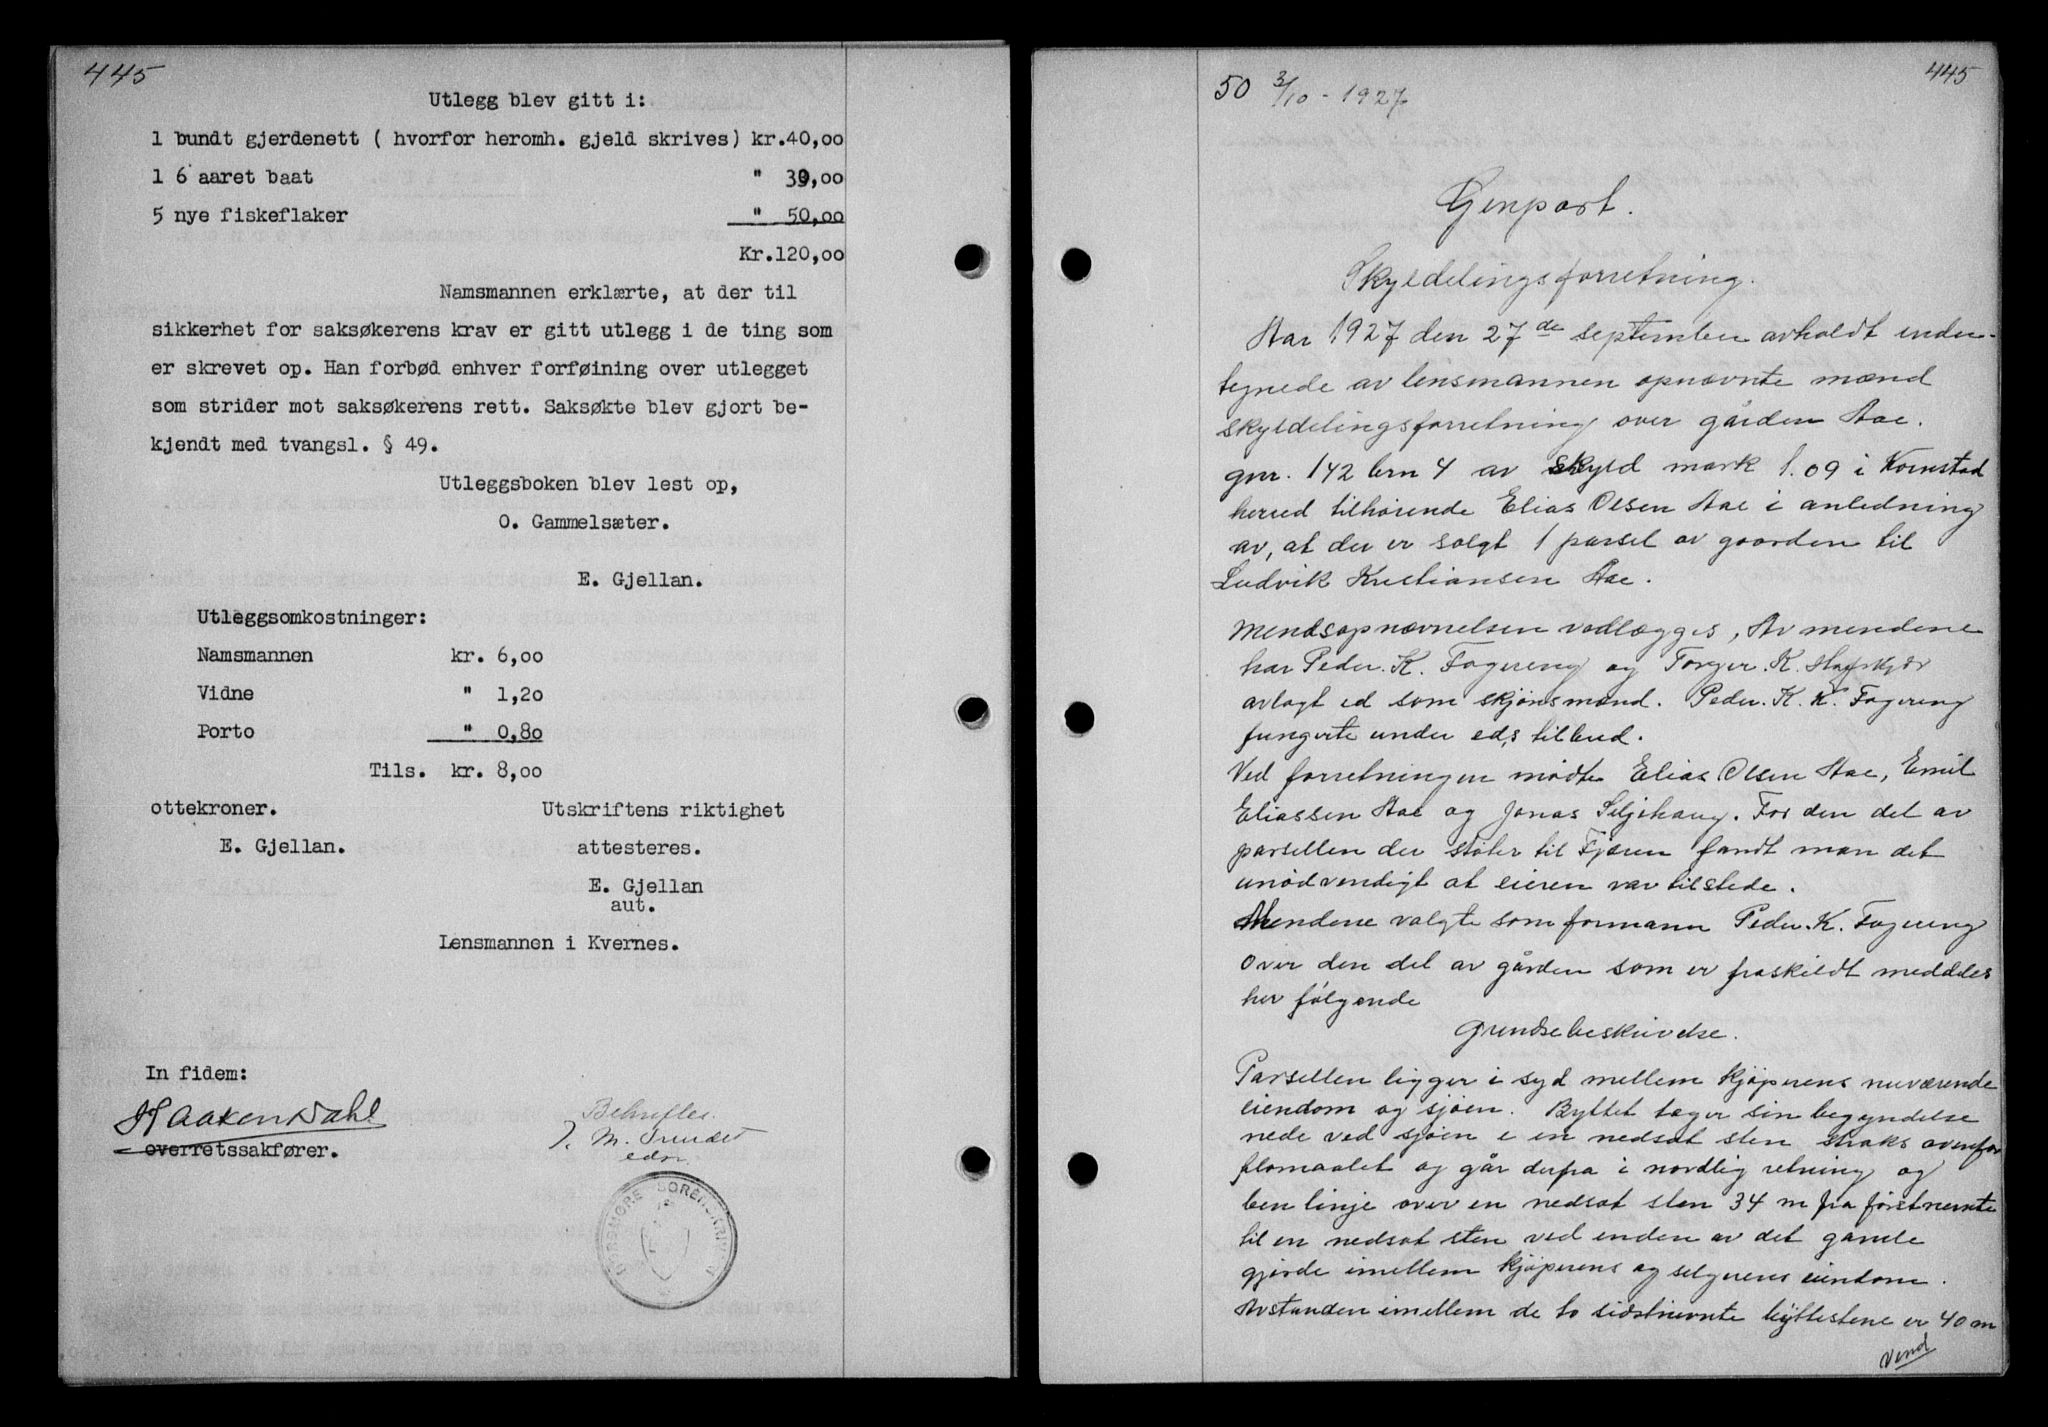 445
Utlegg blev gitt i:
1 bundt gjerdenett ( hvorfor heromh. gjeld skrives) kr.40,00
1 6 aaret baat " 30,00
5 nye fiskeflaker " 50,00
Kr.120,00
Namsmannen erklærte, at der til
sikkerhet for saksøkerens krav er gitt utlegg i de ting som
er skrevet op. Han forbød enhver forføining over utlegget
som strider mot saksøkerens rett. Saksøkte blev gjort be-
kjendt med tvangsl. § 49.
Utleggsboken blev lest op,
O. Gammelsæter.
E. Gjellan.
Utleggsomkostninger:
Namsmannen kr. 6,00
Vidne " 1,20
Porto " 0,80
Tils. kr. 8,00
ottekroner. Utskriftens riktighet
E. Gjellan. attesteres.
E. Gjellan
aut.
Lensmannen i Kvernes.
In fidem:
Haaken Dahl
overretssakfører.
Bekreftes
edsv.
NORDMØRE SORENSKRIVERI
445
50 3/10 - 1927
Genpart.
Skyldelingsforretning.
Aar 1927 den 27de september avholdt under-
tegnede av lensmannen opnævnte mænd
skyldelingsforretning over gården Aae.
gnr. 142 brn 4 av skyld mark 1.09 i Kornstad
herred tilhørende Elias Olsen Aae i anledning
av, at der er solgt 1 parsel av gaarden til
Ludvik Kristiansen Aae.
Mendsopnævnelsen vedlægges, Av mendene
har Peder. K. Fagereng og Torger. K.
avlagt ed som skjønsmænd. Peder. K. K. Fagereng
fungerte under eds tilbud.
Ved forretningen mødte Elias Olsen Aae, Emil
Eliassen Aae og Jonas Seljehaug. For den del av
parsellen der støter til Fjæren fandt man det
unødvendigt at eieren var tilstede.
Mendene valgte som formann Peder. K. Fagereng
Over den del av gården som er fraskildt meddeles
her følgende
Grensebeskrivelse.
Parsellen ligger i syd mellem kjøperens nuværende
eiendom og sjøen. Byttet tager sin begyndelse
nede ved sjøen i en nedsat sten straks ovenfor
flomaalet og går derfra i nordlig retning og
ben linje over en nedsat sten 34 m fra førstnevnte
til en nedsat sten ved enden av det gamle
gjerde imellem kjøperens og selgerens eiendom.
Avstanden imellem de to sidstnevnte byttestene er 40 m
Vend